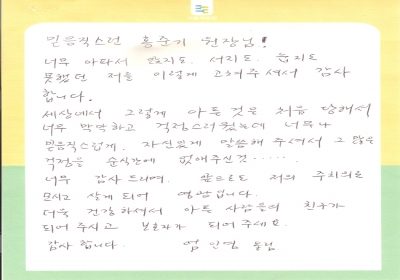 믿음직스런 홍준기 원장님!
너무 아파서 앉지도. 서지도. 눕지도
못했던 저를 이렇게 고쳐주셔서 감사
합니다.
세상에서 그렇게 아픈것을 처음 당해서
너무 막막하고 걱정스러웠는데 너무나
믿음직스럽게. 자신있게 말씀해 주셔서 그 많은
걱정을 순식간에 없애주신것.....
너무 감사드리며. 앞으로도 저의 주치의로
모시고 살게 되어 영광입니다.
더욱 건강하셔서 아픈 사람들의 친구가
되어 주시고 보호자가 되어 주세요.
감사 합니다. 엄인영 올림